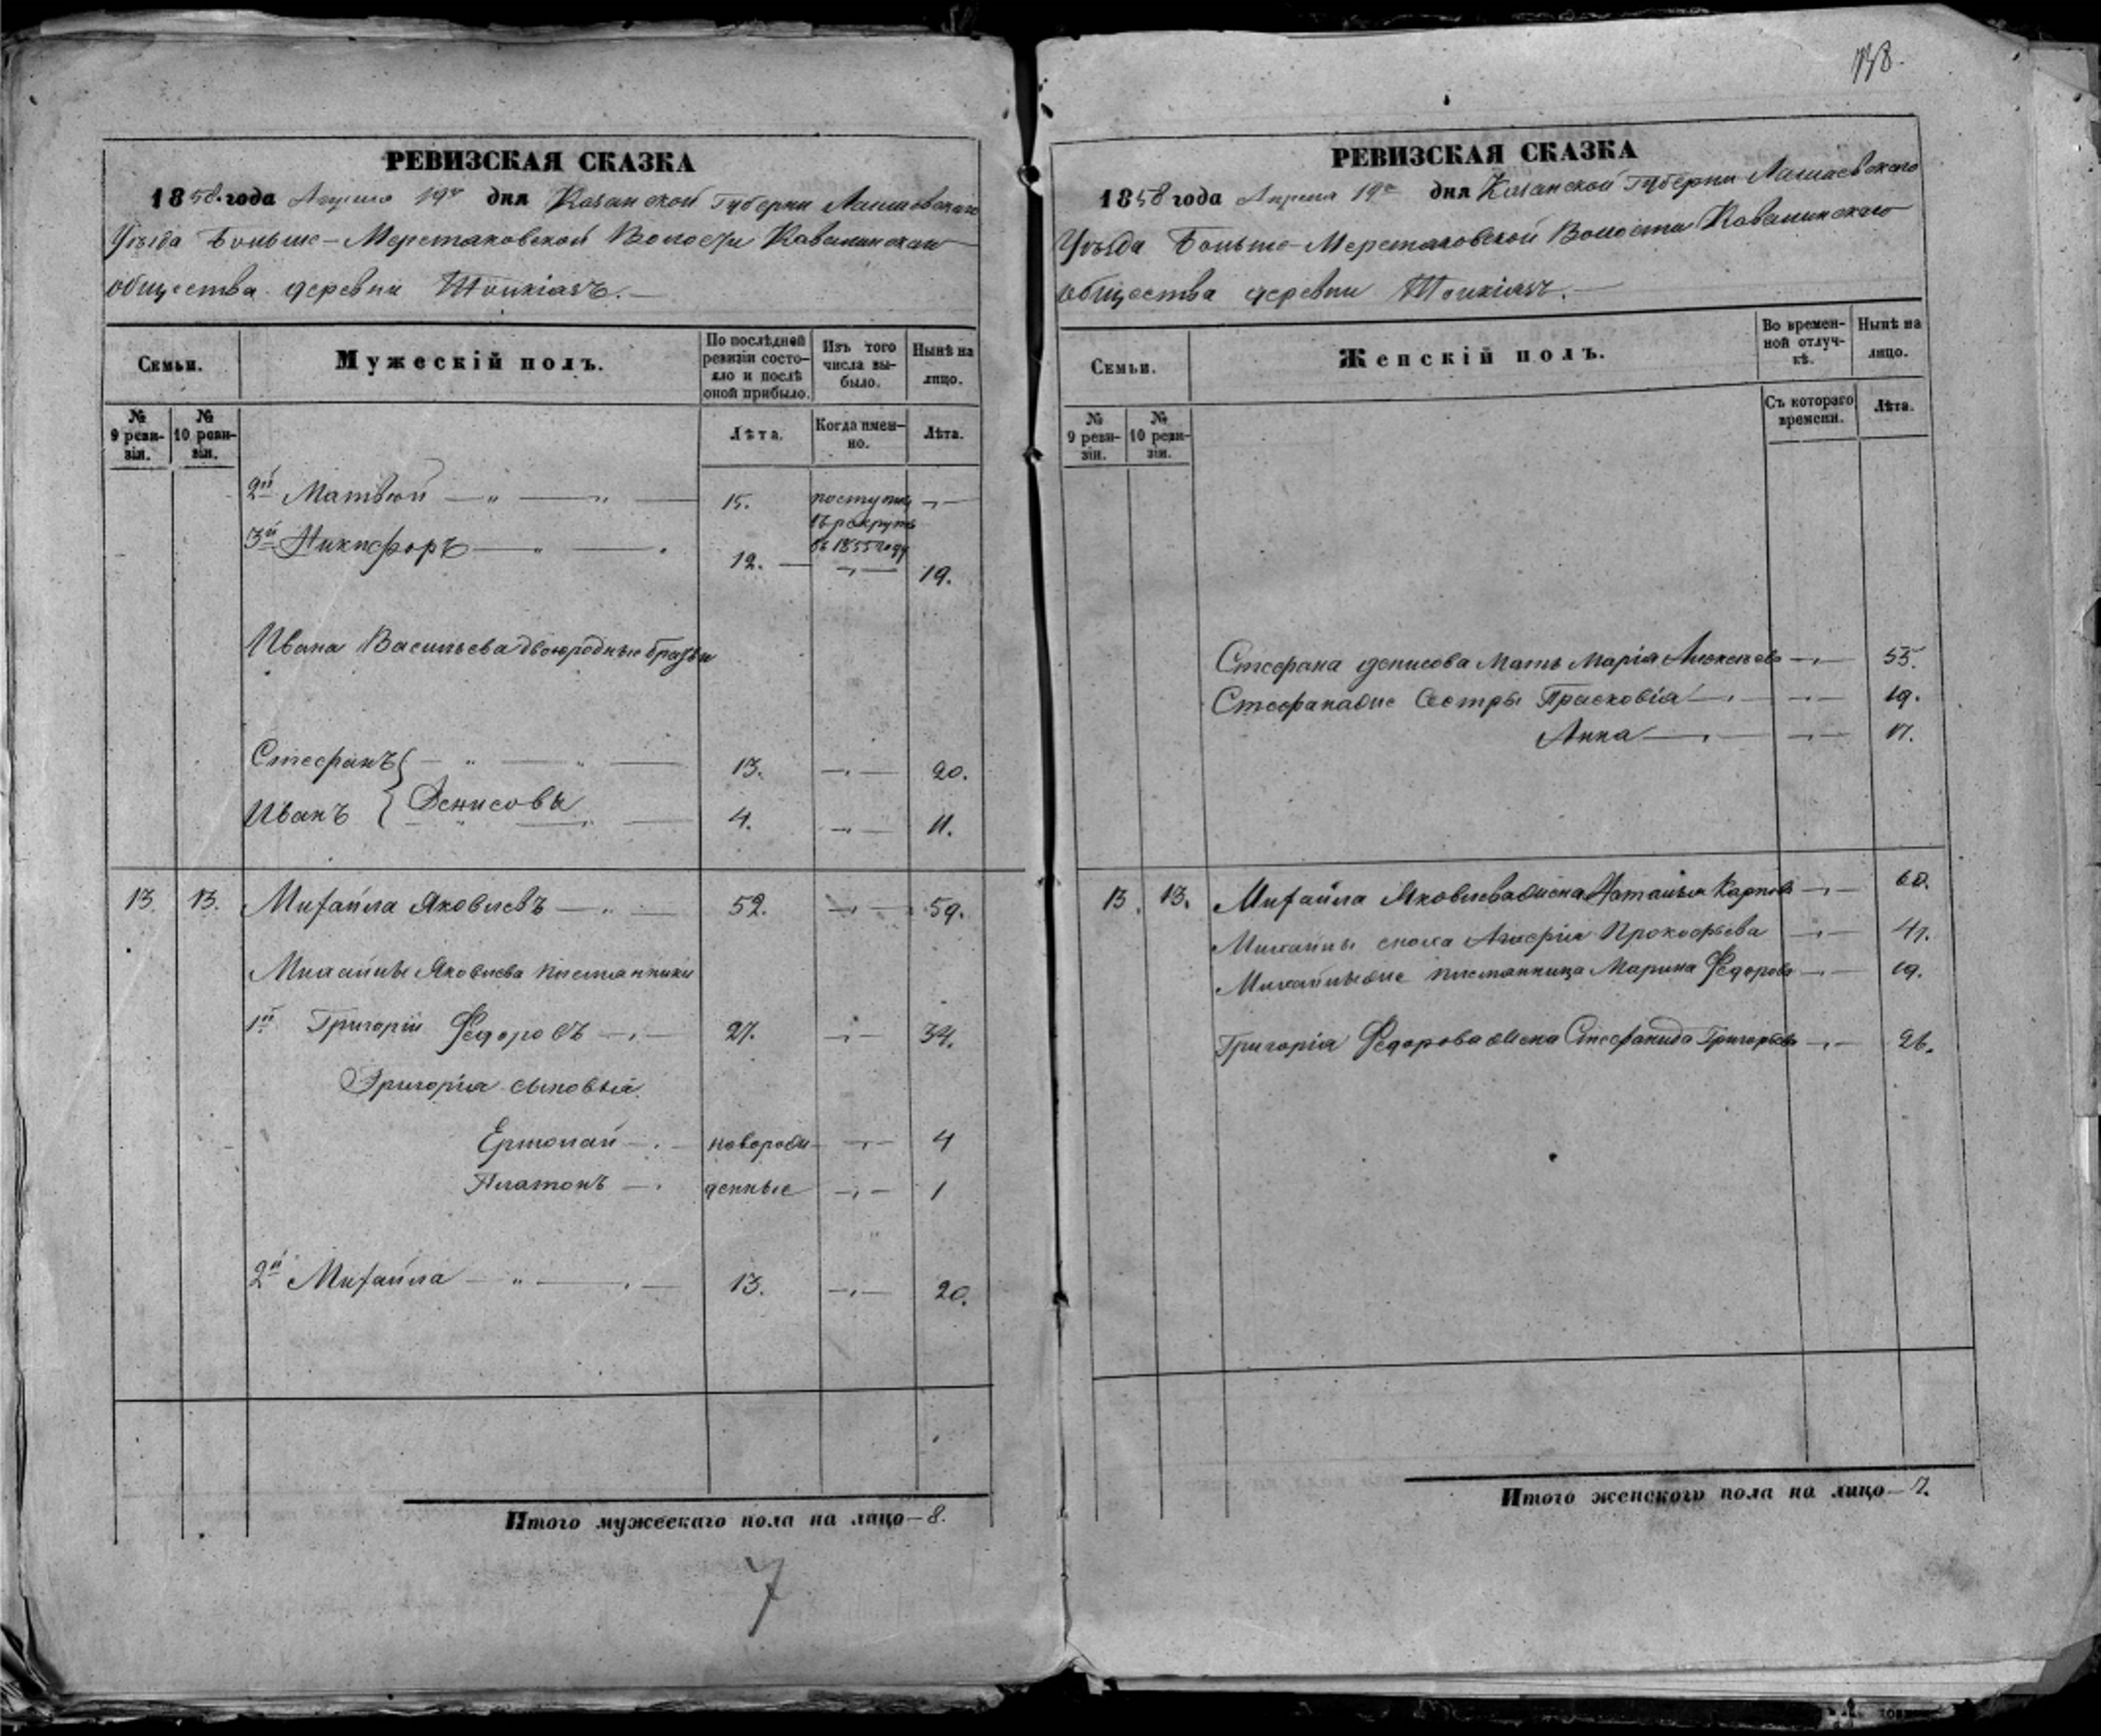 РЕВИЗСКАЯ СКАЗКА
1858 года Апреля 19го дня Казанской Губерни Лаишевскаго
Уѣзда Больше-Меретяковской Волости Ковалинскаго
общества деревни
Семьи.
Мужескій полъ.
По послѣдней ревизіи состояло и послѣ оной прибыло.
Изъ того числа выбыло.
Нынѣ на лицо.
№ 9 ревизіи.
№ 10 ревизіи.
Лѣта.
Когда именно.
Лѣта.
2й Матвѣй — " — " — 15. поступил — " —
въ рекруты
въ 1855 году
3й Никифоръ — " — " 12. — " — 19.
Ивана Васильева двоюродные братья
Стефанъ { — " — " — 13. — " — 20.
Иванъ { Денисовы 4. — " — 11.
13. 13. Михайла Яковлевъ — " — 52. — " — 59.
Михайлы Яковлева племянники
1й Григорій Федоровъ — " — 27. — " — 34.
Григорія сыновья
Ермолай — " — новорож- — " — 4
Платонъ — " денные — " — 1
2й Михайла — " — " — 13. — " — 20.
Итого мужескаго пола на лицо — 8.
7
138.
РЕВИЗСКАЯ СКАЗКА
1858 года Апреля 19го дня Казанской Губерни Лаишевскаго
Уѣзда Больше-Меретяковской Волости Ковалинскаго
общества деревни
Семьи.
Женскій полъ.
Во временной отлучкѣ.
Нынѣ на лицо.
№ 9 ревизіи.
№ 10 ревизіи.
Съ котораго времени.
Лѣта.
Стефана Денисова мать Марія Алексѣева — " — 55.
Стефана же сестры Прасковія — " — " — 19.
Анна — " — " — 17.
13. 13. Михайла Яковлева жена Наталья Карпова — " — 60.
Михайлы сноха Прокофьева — " — 47.
Михайлы же племянница Марина Федорова — " — 19.
Григорія Федорова жена Стефанида Григорьева — " — 26.
Итого женскаго пола на лицо — 7.